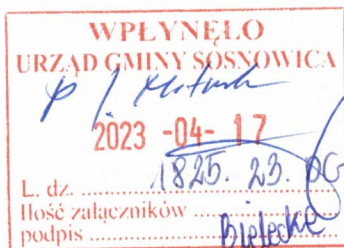 WPŁYNĘŁO
URZĄD GMINY SOSNOWICA
2023 -04- 17
L. dz. .......... 1825. 23. OG
Ilość załączników ..........
podpis .......... Bielecka